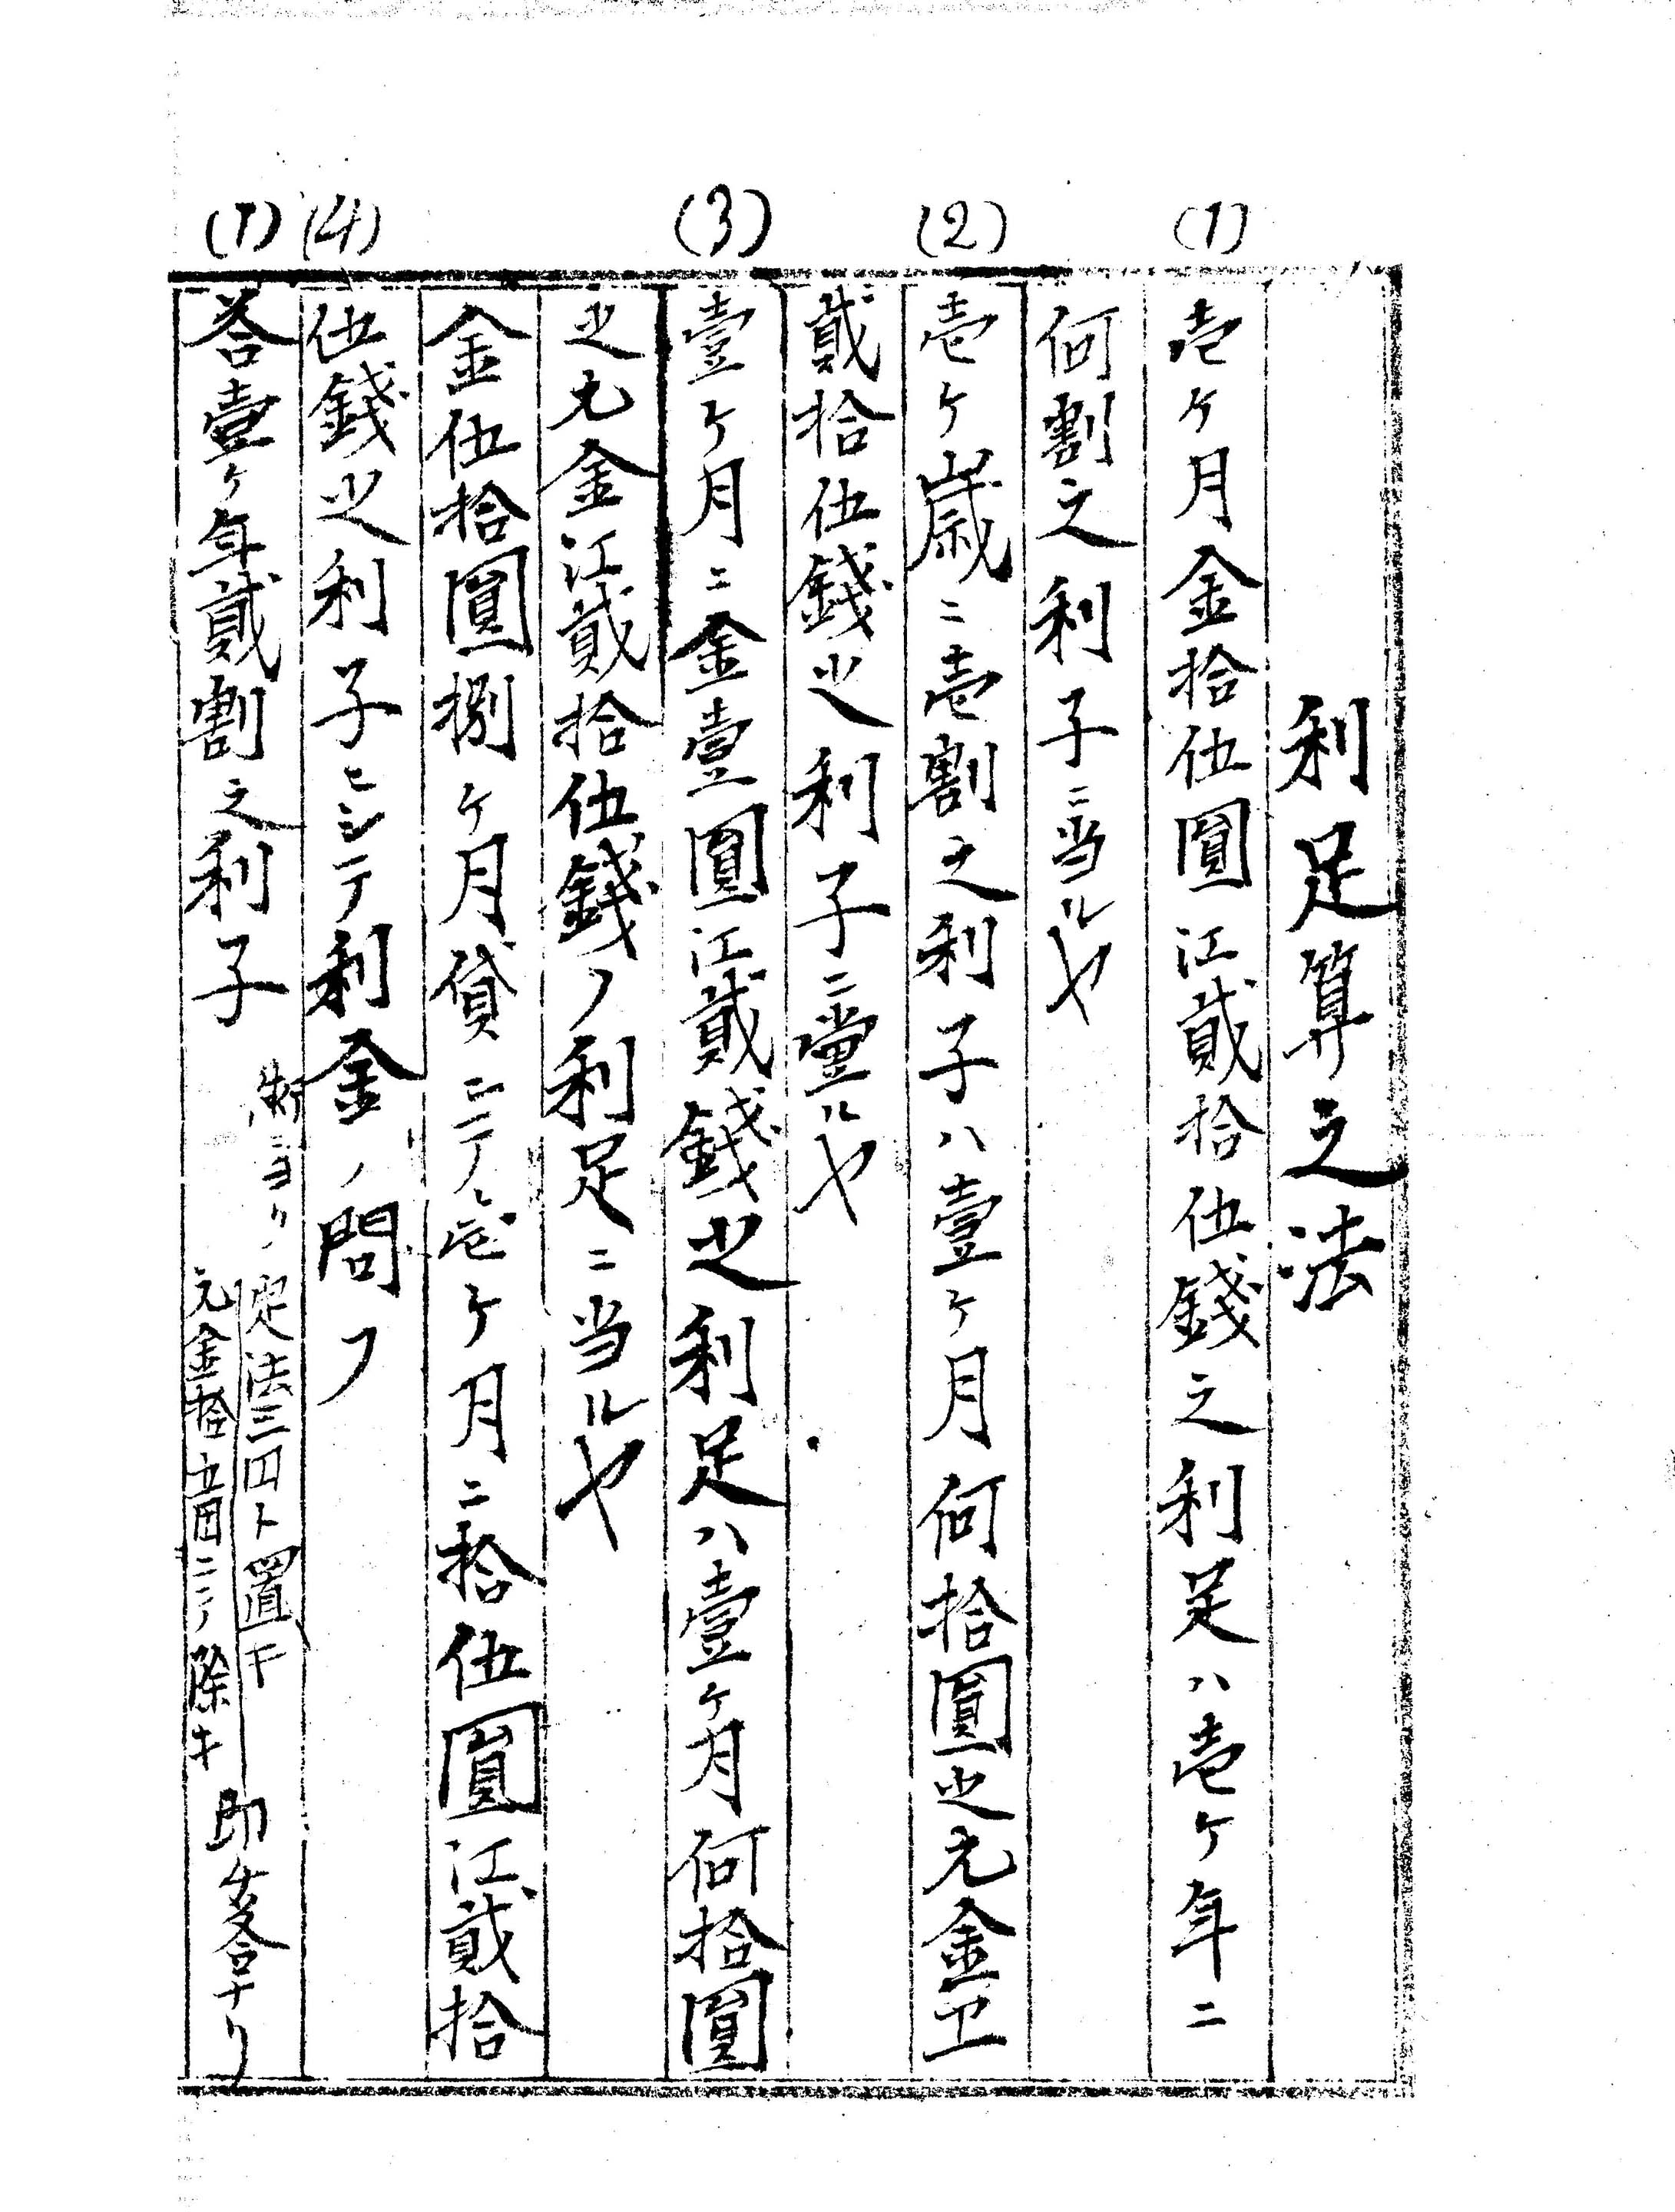 利足算之法
(1)
壱ヶ月金拾伍圓江貮拾伍錢之利足ハ壱ヶ年ニ
何割之利子ニ当ルヤ
(2)
壱ヶ歳ニ壱割之利子ハ壹ヶ月何拾圓之元金工
貮拾伍錢之利子ニ當ルヤ
(3)
壹ヶ月ニ金壹圓江貮錢之利足ハ壹ヶ月何拾圓
之元金江貮拾伍錢ノ利足ニ当ルヤ
金伍拾圓捌ヶ月貸シテ壱ヶ月ニ拾伍圓江貮拾
(4)
伍錢之利子ニシテ利金ノ問フ
(1)
答壹ヶ年貮割之利子
術ニヨリ
定法三円ト置キ
元金拾五円ニテ除キ
即チ答ナリ